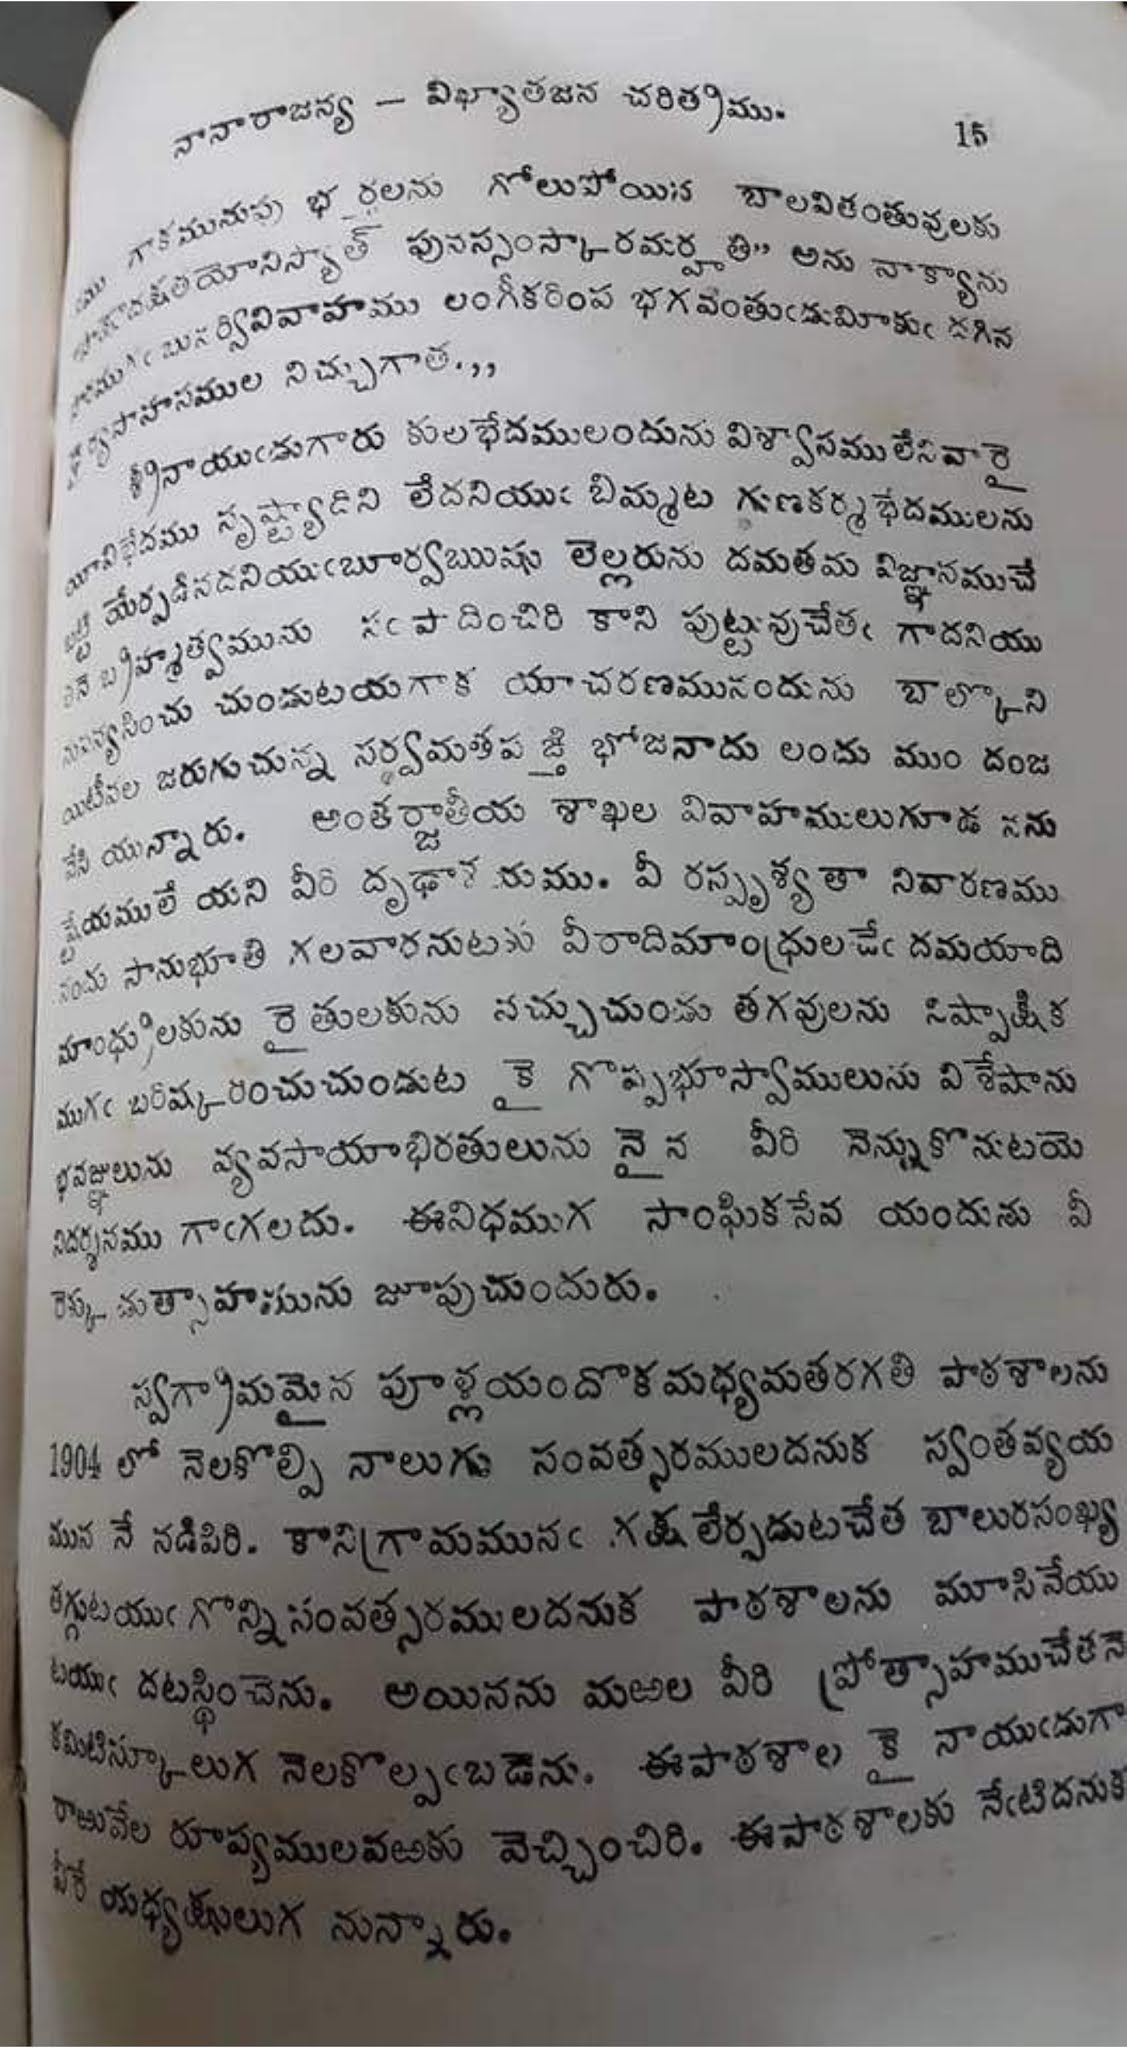 నానారాజన్య — విఖ్యాతజన చరిత్రము. 15
గాకమునుపు భర్తలను గోలుపోయిన బాలవితంతువులకు
పునస్సంస్కారమర్హతి" అను నాక్యాను
లంగీకరింప భగవంతుఁడుమీకుఁ దగిన
నిచ్చుగాత.,,
శ్రీనాయుఁడుగారు కులభేదములందును విశ్వాసములేనివారై
యీవిభేదము సృష్ట్యాదిని లేదనియుఁ బిమ్మట గుణకర్మభేదములను
బట్టి యేర్పడినదనియుఁబూర్వఋషు లెల్లరును దమతమ విజ్ఞానముచే
తనే బ్రాహ్మత్వమును సఁపాదించిరి కాని పుట్టువుచేతఁ గాదనియు
నుపన్యసించు చుండుటయగాక యాచరణమునందును బాల్కొని
యిటీవల జరుగుచున్న సర్వమతపఙ్క్తి భోజనాదు లందు ముం దంజ
వేసి యున్నారు. అంతర్జాతీయ శాఖల వివాహములుగూడ నను
ష్ఠేయములే యని వీరి దృఢా వీ రస్పృశ్యతా నివారణము
నందు సానుభూతి గలవారనుటకు వీరాదిమాంధ్రులచేఁ దమయాది
మాంధ్రులకును రైతులకును నచ్చుచుండు తగవులను నిష్పాక్షిక
ముగఁ బరిష్కరించుచుండుట కై గొప్పభూస్వాములును విశేషాను
భవజ్ఞులును వ్యవసాయాభిరతులును నైన వీరి నెన్నుకొనుటయె
నిదర్శనము గాఁగలదు. ఈనిధముగ సాంఘికసేవ యందును వీ
రెక్కు డుత్సాహమును జూపుచుందురు.
స్వగ్రామమైన పూళ్లయందొకమధ్యమతరగతి పాఠశాలను
1904 లో నెలకొల్పి నాలుగు సంవత్సరములదనుక స్వంతవ్యయ
మున నే నడిపిరి. కానిగ్రామమునఁ గక్షలేర్పడుటచేత బాలురసంఖ్య
తగ్గుటయుఁ గొన్నిసంవత్సరములదనుక పాఠశాలను మూసివేయు
టయుఁ దటస్థించెను. అయినను మఱల వీరి ప్రోత్సాహముచేతనె
కమిటిస్కూలుగ నెలకొల్పఁబడెను. ఈపాఠశాల కై నాయుఁడుగా
రాఱువేల రూప్యములవఱకు వెచ్చించిరి. ఈపాఠశాలకు నేఁటిదనుక
వీరే యధ్యక్షులుగ నున్నారు.